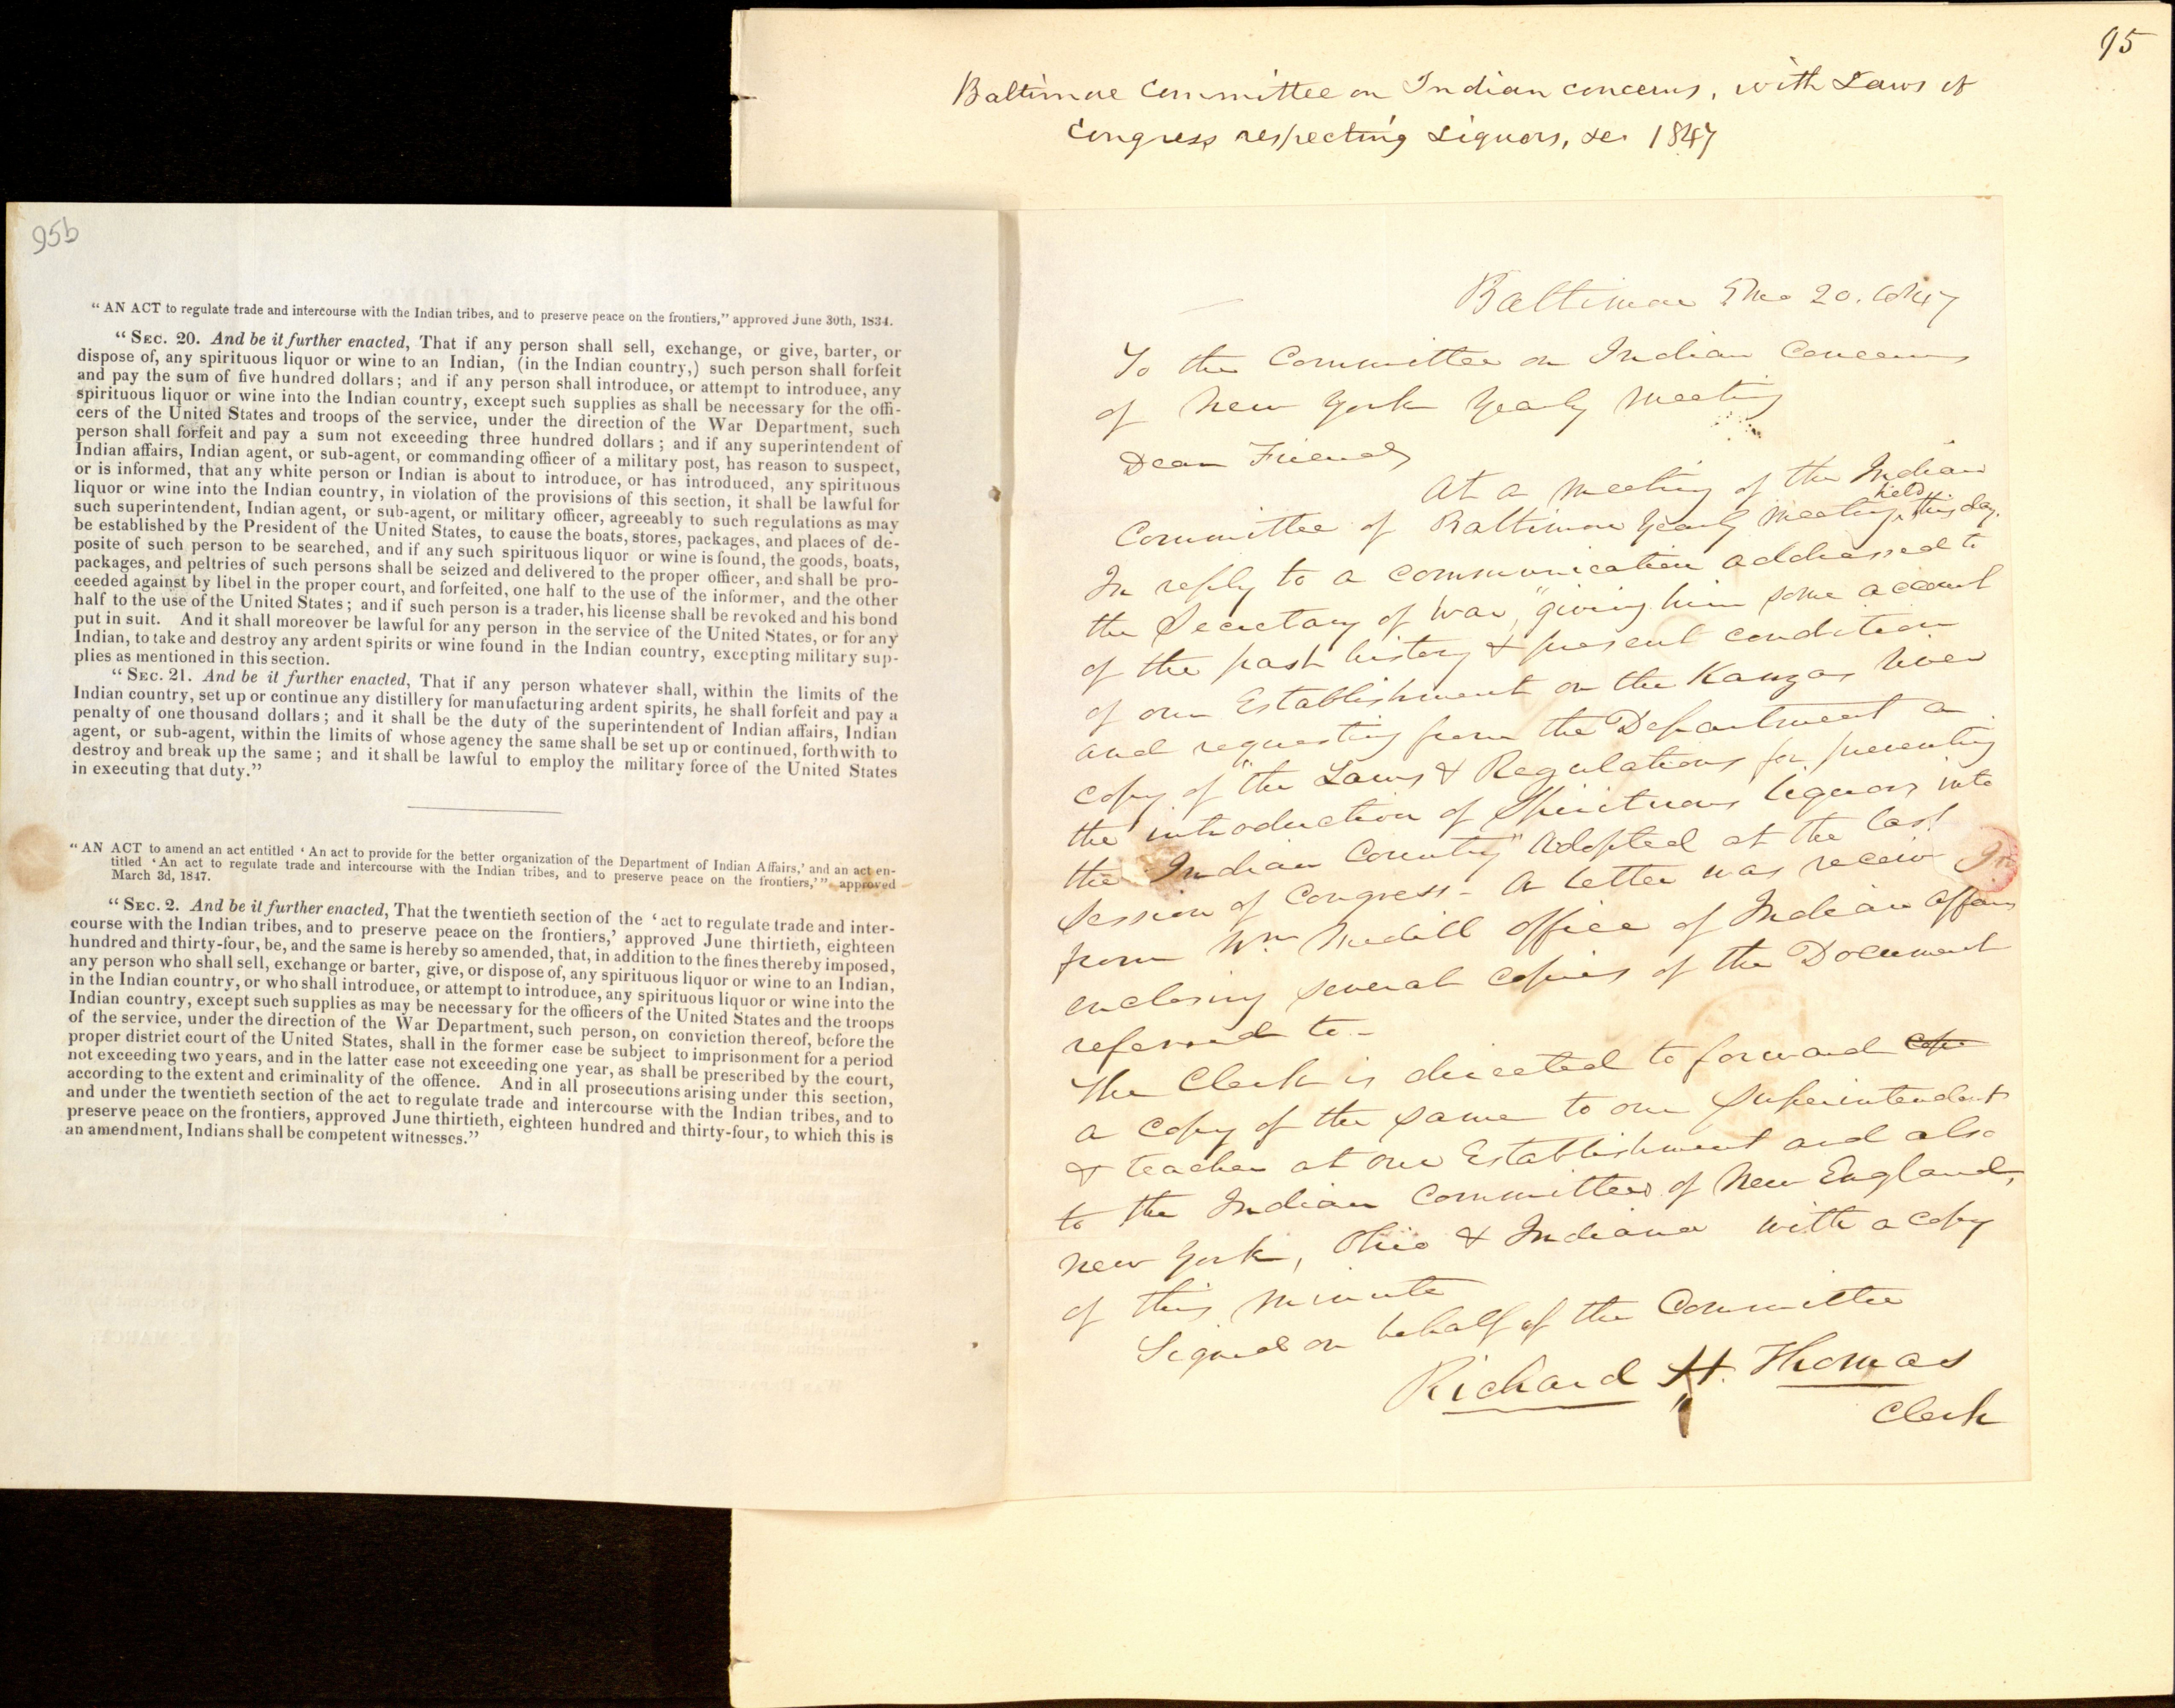 95
Baltimore Committee on Indian concerns, with Laws of
Congress respecting Liquors, &c. 1847
95b
“ AN ACT to regulate trade and intercourse with the Indian tribes, and to preserve peace on the frontiers,” approved June 30th, 1834.
“ SEC. 20. And be it further enacted, That if any person shall sell, exchange, or give, barter, or
dispose of, any spirituous liquor or wine to an Indian, (in the Indian country,) such person shall forfeit
and pay the sum of five hundred dollars; and if any person shall introduce, or attempt to introduce, any
spirituous liquor or wine into the Indian country, except such supplies as shall be necessary for the offi-
cers of the United States and troops of the service, under the direction of the War Department, such
person shall forfeit and pay a sum not exceeding three hundred dollars; and if any superintendent of
Indian affairs, Indian agent, or sub-agent, or commanding officer of a military post, has reason to suspect,
or is informed, that any white person or Indian is about to introduce, or has introduced, any spirituous
liquor or wine into the Indian country, in violation of the provisions of this section, it shall be lawful for
such superintendent, Indian agent, or sub-agent, or military officer, agreeably to such regulations as may
be established by the President of the United States, to cause the boats, stores, packages, and places of de-
posite of such person to be searched, and if any such spirituous liquor or wine is found, the goods, boats,
packages, and peltries of such persons shall be seized and delivered to the proper officer, and shall be pro-
ceeded against by libel in the proper court, and forfeited, one half to the use of the informer, and the other
half to the use of the United States; and if such person is a trader, his license shall be revoked and his bond
put in suit. And it shall moreover be lawful for any person in the service of the United States, or for any
Indian, to take and destroy any ardent spirits or wine found in the Indian country, excepting military sup-
plies as mentioned in this section.
“ SEC. 21. And be it further enacted, That if any person whatever shall, within the limits of the
Indian country, set up or continue any distillery for manufacturing ardent spirits, he shall forfeit and pay a
penalty of one thousand dollars; and it shall be the duty of the superintendent of Indian affairs, Indian
agent, or sub-agent, within the limits of whose agency the same shall be set up or continued, forthwith to
destroy and break up the same; and it shall be lawful to employ the military force of the United States
in executing that duty.”
“ AN ACT to amend an act entitled ‘ An act to provide for the better organization of the Department of Indian Affairs,’ and an act en-
titled ‘ An act to regulate trade and intercourse with the Indian tribes, and to preserve peace on the frontiers,’ ” approved
March 3d, 1847.
“ SEC. 2. And be it further enacted, That the twentieth section of the ‘ act to regulate trade and inter-
course with the Indian tribes, and to preserve peace on the frontiers,’ approved June thirtieth, eighteen
hundred and thirty-four, be, and the same is hereby so amended, that, in addition to the fines thereby imposed,
any person who shall sell, exchange or barter, give, or dispose of, any spirituous liquor or wine to an Indian,
in the Indian country, or who shall introduce, or attempt to introduce, any spirituous liquor or wine into the
Indian country, except such supplies as may be necessary for the officers of the United States and the troops
of the service, under the direction of the War Department, such person, on conviction thereof, before the
proper district court of the United States, shall in the former case be subject to imprisonment for a period
not exceeding two years, and in the latter case not exceeding one year, as shall be prescribed by the court,
according to the extent and criminality of the offence. And in all prosecutions arising under this section,
and under the twentieth section of the act to regulate trade and intercourse with the Indian tribes, and to
preserve peace on the frontiers, approved June thirtieth, eighteen hundred and thirty-four, to which this is
an amendment, Indians shall be competent witnesses.”
Baltimore 5mo 20. 1847
To the Committee on Indian Concerns
of New York Yearly Meeting
Dear Friends
At a meeting of the Indian
Committee of Baltimore Yearly Meeting held this day.
In reply to a communication addressed to
the Secretary of War, "giving him some account
of the past history & present condition
of our Establishment on the Kanzas river
and requesting from the Department a
copy of "the Laws & Regulations for preventing
the introduction of Spirituous liquors into
the Indian Country" Adopted at the last
Session of Congress - A letter was receiv
from Wm Medill office of Indian Affairs
enclosing several copies of the Document
referred to -
The Clerk is directed to forward
a copy of the same to our Superintendent
& teacher at our Establishment and also
to the Indian Committees of New England,
New York, Ohio & Indiana with a copy
of this minute
Signed on behalf of the Committee
Richard H. Thomas
Clerk